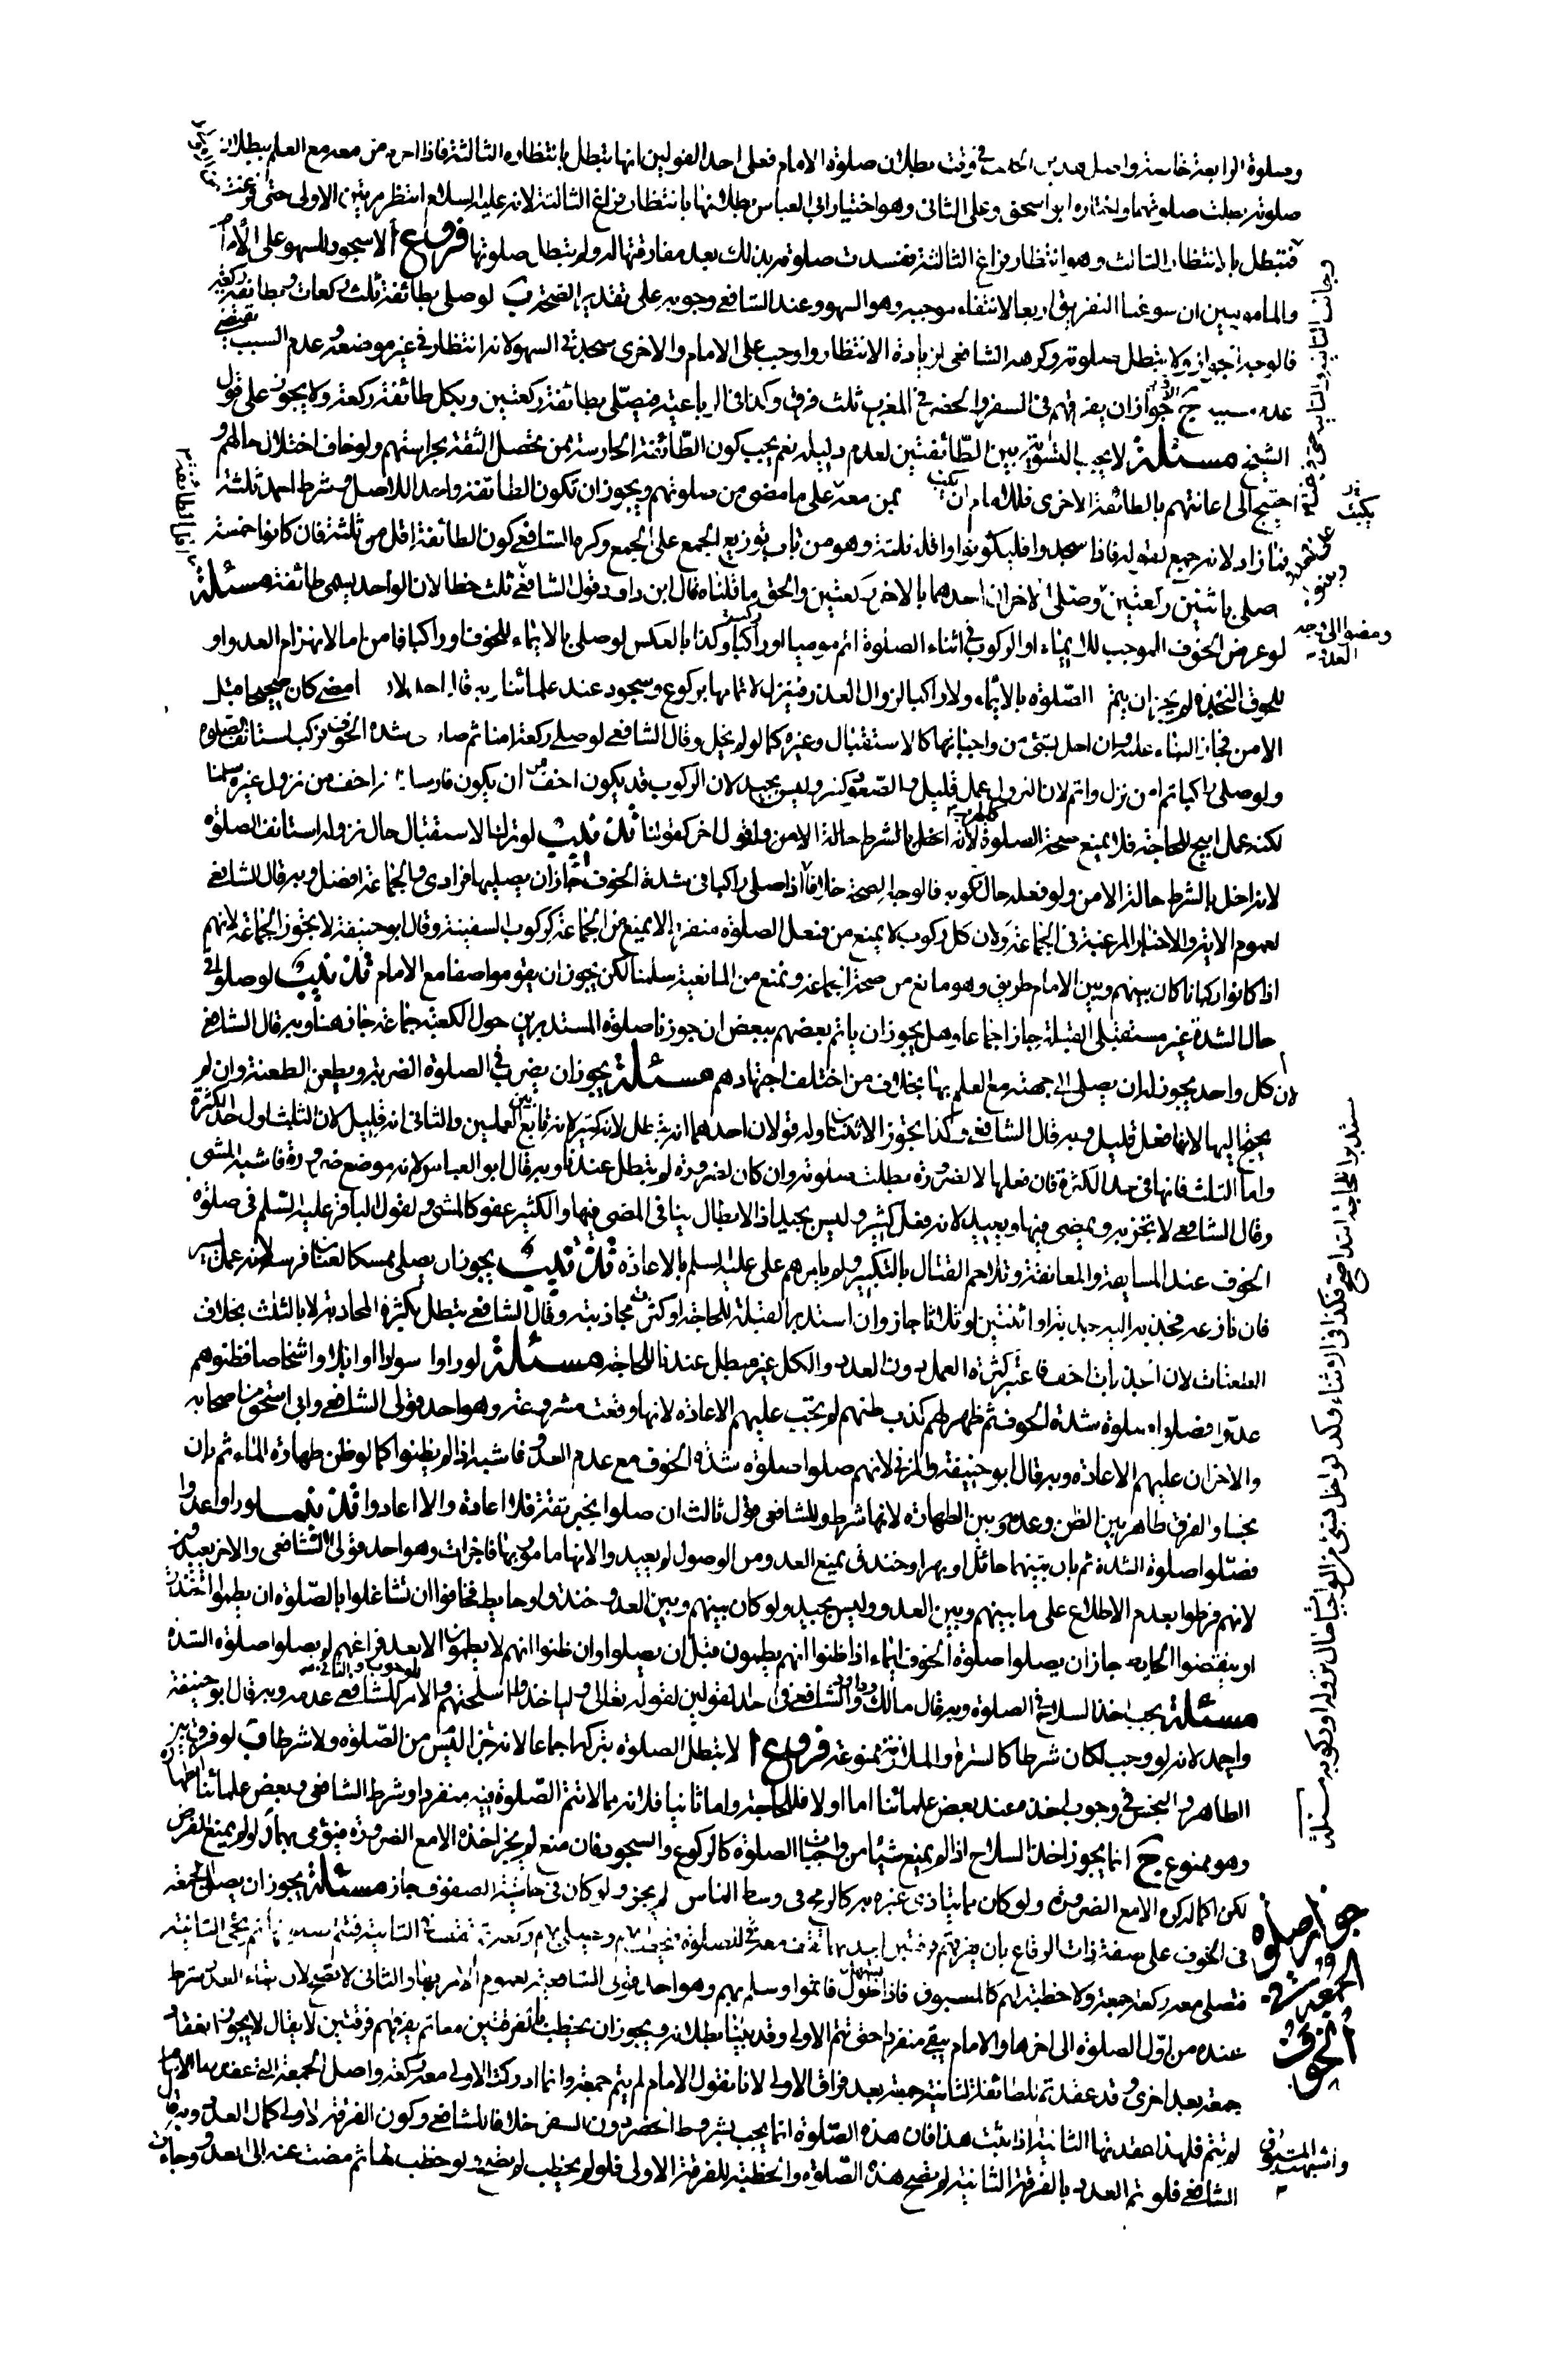 وصلوة الرابعة خامسة واصل هذين في وقت بطلان صلوة الامام فعلى احد القولين انها تبطل بانتظاره الثالثة فاذا احرم من معه مع العلم ببطلان
صلوته بطلت صلوتهما واختاره ابو اسحق وعلى الثاني وهو اختيار ابي العباس بطلانها بانتظار فراغ الثالثة لانه عليه السلام انتظر مرتين الاولى حتى فرغت
فتبطل بالانتظار الثالث وهو انتظار فراغ الثالثة ففسدت صلوته بذلك بعد مفارقتها له ولم تبطل صلوتها فروع ا لا سجود للسهو على الامام
والمامومين ان سوغنا التفريق اربعا لانتفاء موجبه وهو السهو وعند الشافعي وجوبه على تقدير الصحة ب لو صلى بطائفة ثلث ركعات وبطائفة ركعة
فالوجه الجواز ولا تبطل صلوته وكرهه الشافعي لزيادة الانتظار واوجب على الامام والاخرى سجدتي السهو لانه انتظار في غير موضعه وعدم السبب يقتضي
عدم مسببه ج الاقرب جواز ان يفرقهم في السفر والحضر في المغرب ثلث فرق وكذا في الرباعية فيصلي بطائفة ركعتين وبكل طائفة ركعة ولا يجوز على قول
الشيخ مسئلة لا يجب التسوية بين الطائفتين لعدم دليله نعم يجب كون الطائفة الحارسة ممن يحصل الثقة بحراستهم ولو خاف اختلال حالهم و
احتيج الى اعانتهم بالطائفة الاخرى فللامام ان يثبت بمن معه على ما مضى من صلوتهم ويجوز ان تكون الطائفة واحدا للاصل وشرط احمد ثلثة
فما زاد لانه جمع لقوله فاذا سجدوا فليكونوا واقله ثلثة وهو من باب توزيع الجمع على الجمع وكره الشافعي كون الطائفة اقل من ثلثة فان كانوا خمسة
صلى باثنين ركعتين وصلى الاخران احدهما بالاخر ركعتين والحق ما قلناه قال ابن داود قول الشافعي ثلث خطا لان الواحد يسمى طائفة مسئلة
لو عرض الخوف الموجب للايماء او الركوب في اثناء الصلوة اتم موميا او راكبا وكذا بالعكس لو صلى بالايماء للخوف او راكبا فامن اما لانهزام العدو او
للحوق النجدة لم يجز ان يتم الصلوة بالايماء ولا راكبا لزوال العذر فينزل لاتمامها بركوع وسجود عند علمائنا وبه قال احمد امضى كان صحيحا قبل
الامن فجاز البناء عليه وان اخل بشئ من واجباتها كالاستقبال وغيره كما لو لم يخل وقال الشافعي لو صلى ركعة امنا ثم صار شدة الخوف فركب استانف الصلوة
ولو صلى راكبا ثم امن نزل واتم لان النزول عمل قليل والصعود كثير وليس بجيد لان الركوب قد يكون اخف من ان يكون فارسا اخف من نزول غيره سلمنا
لكنه عمل ابيح للحاجة فلا يمنع صحة الصلوة لانه اخل بالشرط حالة الامن ولقول اخر كقولنا تذنيب لو ترك الاستقبال حال نزوله استانف الصلوة
لانه اخل بالشرط حالة الامن ولو فعله حال ركوبه فالوجه الصحة خلافا اذا صلى راكبا في شدة الخوف جاز ان يصليها فرادى والجماعة افضل وبه قال الشافعي
لعموم الاية والاخبار المرغبة في الجماعة ولان كل ركوب لا يمنع من فعل الصلوة منفردا لا يمنع من الجماعة كركوب السفينة وقال ابو حنيفة لا يجوز الجماعة لانهم
اذا كانوا ركبانا كان بينهم وبين الامام طريق وهو مانع من صحة الجماعة ونمنع من المانعية سلمنا لكن يجوز ان يقوموا صفا مع الامام تذنيب لو صلوا في
حال الشدة غير مستقبلي القبلة جاز اجماعا وهل يجوز ان ياتم بعضهم ببعض ان جوزنا صلوة المستديرين حول الكعبة جماعة جاز هنا وبه قال الشافعي
لان كل واحد يجوز له ان يصلي الى جهته مع العلم بها بخلاف من اختلف اجتهادهم مسئلة يجوز ان يضرب في الصلوة الضربة ويطعن الطعنة وان لم
يحتج اليها لانها فعل قليل وبه قال الشافعي وكذا يجوز الاثنتان وله قولان احدهما انه تبطل لانه كثير لانه تابع بين العملين والثاني انه قليل لان الثلث اول حد الكثرة
واما الثلث فانها في حد الكثرة فان فعلها لا لضرورة بطلت صلوته وان كان لضرورة لم تبطل عندنا وبه قال ابو العباس لانه موضع ضرورة فاشبه المشي
وقال الشافعي لا تجزيه ويمضي فيها ويعيد لانه فعل كثير وليس بجيد اذ الابطال ينافي المضي فيها والكثير عفو كالمشي ولقول الباقر عليه السلم في صلوة
الخوف عند المسايفة والمعانقة وتلاحم القتال بالتكبير ولم يامرهم علي عليه السلم بالاعادة تذنيب يجوز ان يصلي ممسكا لعنان فرسه لانه عمل يسير
فان نازعه فجذبه اليه جذبة او اثنتين او ثلاثا جاز وان استدبر القبلة للحاجة او كثرت مجاذبته وقال الشافعي تبطل بكثرة المجاذبة لا بالثلث بخلاف
الطعنات لان الجذبات اخف فاعتبر كثرة العمل دون العدد والكل غير مبطل عندنا للحاجة مسئلة لو راوا سوادا او ابلا او اشخاصا فظنوهم
عدوا فصلوا صلوة شدة الخوف ثم ظهر لهم كذب ظنهم لم يجب عليهم الاعادة لانها وقعت مشروعة وهو احد قولي الشافعي وابي اسحق من اصحابه
والاخر ان عليهم الاعادة وبه قال ابو حنيفة والمزني لانهم صلوا صلوة شدة الخوف مع عدم العدو فاشبه اذا لم يظنوا كما لو ظن طهارة الماء ثم بان
نجسا والفرق ظاهر بين الظن وعدمه وبين الطهارة لانها شرط وللشافعي قول ثالث ان صلوا بخبر ثقة فلا اعادة والا اعادوا تذنيب لو راوا عدوا
فصلوا صلوة الشدة ثم بان بينهما حائل او نهر او خندق يمنع العدو من الوصول لم يعيدوا لانها مامور بها فاجزات وهو احد قولي الشافعي والاخر يعيدون
لانهم فرطوا بعدم الاطلاع على ما بينهم وبين العدو وليس بجيد ولو كان بينهم وبين العدو خندق او حايط فخافوا ان تشاغلوا بالصلوة ان يطموا الخندق
او ينقضوا الحايط جاز ان يصلوا صلوة الخوف ايماء اذا ظنوا انهم يطمون قبل ان يصلوا وان ظنوا انهم لا يطمون الا بعد فراغهم لم يصلوا صلوة الشدة
مسئلة يجب اخذ السلاح في الصلوة وبه قال مالك وداود والشافعي في احد القولين لقوله تعالى وليأخذوا اسلحتهم والامر للوجوب والثاني للشافعي عدمه وبه قال ابو حنيفة
واحمد لانه لو وجب لكان شرطا كالسترة والملازمة ممنوعة فروع ا لا تبطل الصلوة بتركها اجماعا لانه ليس جزءا من الصلوة ولا شرطا ب لو فرق بين
الطاهر والنجس في وجوب اخذه عند بعض علمائنا اما اولا فللحاجة واما ثانيا فلانه مما لا تتم الصلوة فيه منفردا وشرط الشافعي وبعض علمائنا طهارة
وهو ممنوع ج انما يجوز اخذ السلاح اذا لم يمنع شيئا من واجبات الصلوة كالركوع والسجود فان منع لم يجز اخذه الا مع الضرورة فيومي بهما ولو لم يمنع الفرض
لكن اكماله كره الا مع الضرورة ولو كان مما يتاذى غيره به كالرمح في وسط الناس لم يجز ولو كان في حاشية الصفوف جاز مسئلة يجوز ان يصلي الجمعة
في الخوف على صفة ذات الرقاع بان يفرقهم فرقتين احديهما تقف معه للصلوة فيخطب بهم ويصلي بهم ركعة ثم تقف في الثانية فيتم ثم يجئ الثانية
فتصلي معه ركعة جمعة ولا خطبة لهم كالمسبوق فاذا طول فاتموا وسلم بهم وهو احد قولي الشافعية لعموم الامر بها والثاني لا تصح لان بقاء العدد شرط
عنده من اول الصلوة الى اخرها والامام يبقى منفردا حتى تتم الاولى وقد بينا بطلانه ويجوز ان يخطب بالفرقتين معا ثم يفرقهم فرقتين لا يقال لا يجوز انعقاد
جمعة بعد اخرى وقد عقدتم للطائفة الثانية جمعة بعد فراق الاولى لانا نقول الامام لم يتم جمعة وانما ادركت الاولى معه ركعة واصل الجمعة التي عقدها الامام
لم تتم فلهذا عقدتها الثانية اذا ثبت هذا فان هذه الصلوة انما يجب بشروط الحضر دون السفر خلافا للشافعي وكون الفرقة الاولى كمال العدد وبه قال
الشافعي فلو تم العدد بالفرقة الثانية لم يصح هذه الصلوة والخطبة للفرقة الاولى فلو لم يخطب لم يصح ولو خطب لها ثم مضت عنه الى العدو وجاءت
وجائت الثانية
ومضوا الى وجه
العدو
جواز صلوة
الجمعة في
الخوف